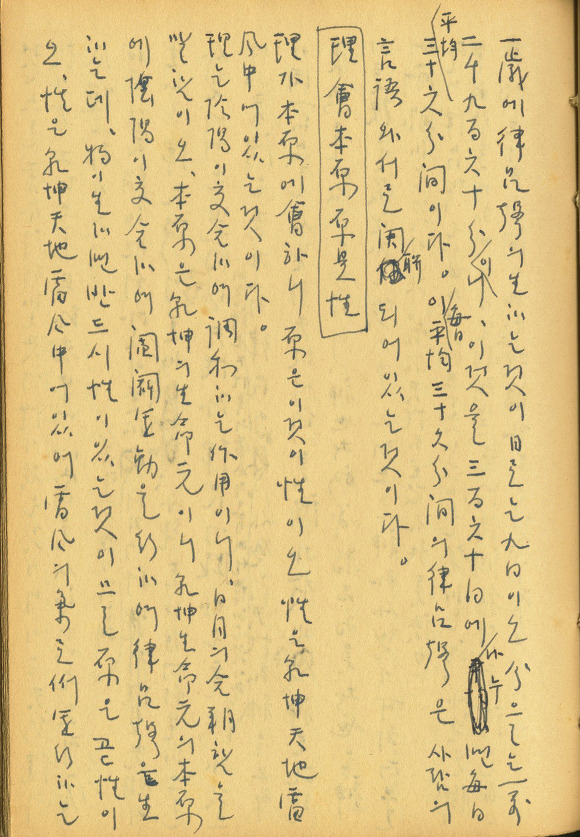 一歲에 律呂聲의 生하는것이 日로는 九日이오 分으로는 一万
二千九百六十分이니, 이것을 三百六十日에 나누면 每日
平均 三十六分間이다。 이 每日平均 三十六分間의 律呂聲은 사람의
言語와 서로 関聯되어 있는것이다。
理會本原原是性
理가 本原에 會하니 原은 이것이 性이오 性은 乾坤天地雷
風中에 있는것이다。
理는 陰陽이 交会하야 調和하는 作用이니, 日月의 会朔說을
말함이오, 本原은 乾坤의 生命元이니 乾坤生命元의 本原
에 陰陽이 交会하야 闔闢運動을 行하야 律呂聲을 生
하는데, 物이 生하면 반드시 性이 있는것이므로 原은 곧 性이
오, 性은 乾坤天地雷風中에 있어 雷風의 氣로 运行하는